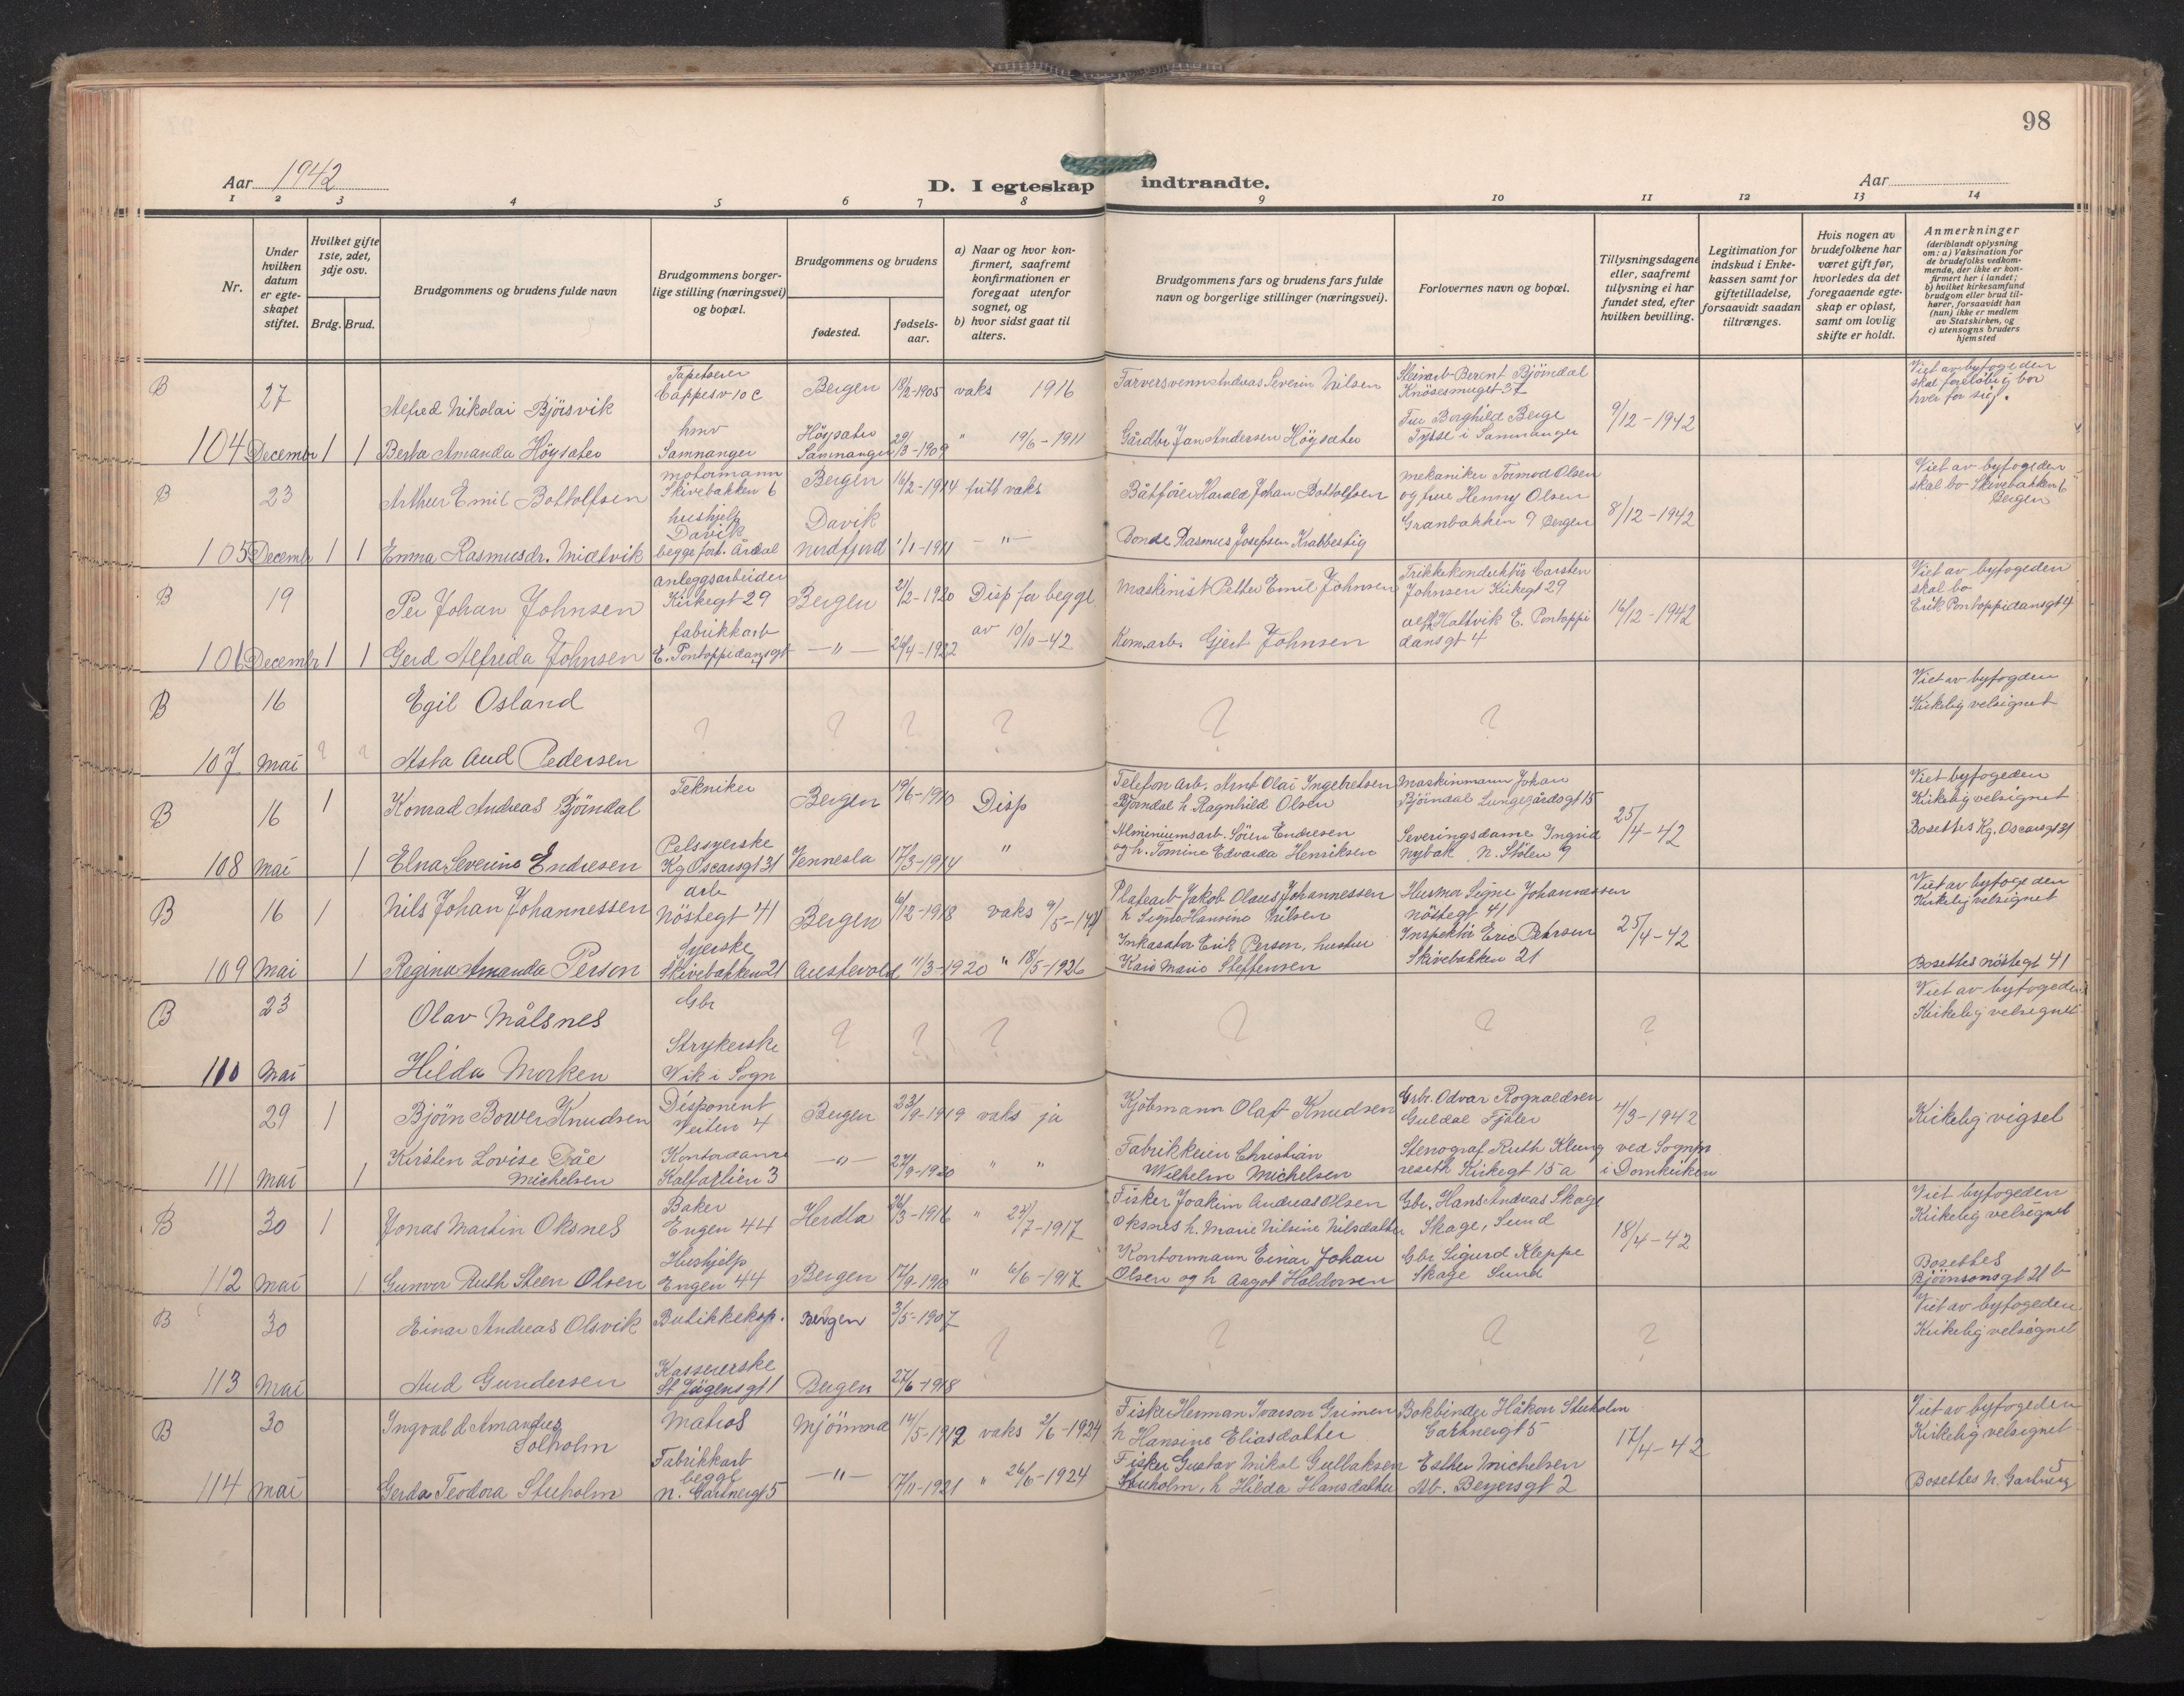 98
Aar 1942
D. I egteskap indtraadte.
Aar
1 2 3 4 5 6 7 8 9 10 11 12 13 14
Nr.
Under hvilken datum er egteskapet stiftet.
Hvilket gifte 1ste, 2det, 3dje osv.
Brdg. Brud.
Brudgommens og brudens fulde navn
Brudgommens borgerlige stilling (næringsvei) og bopæl.
Brudgommens og brudens
fødested.
fødselsaar.
a) Naar og hvor konfirmert, saafremt konfirmationen er foregaat utenfor sognet, og
b) hvor sidst gaat til alters.
Brudgommens fars og brudens fars fulde navn og borgerlige stillinger (næringsvei).
Forlovernes navn og bopæl.
Tillysningsdagene eller, saafremt tillysning ei har fundet sted, efter hvilken bevilling.
Legitimation for indskud i Enkekassen samt for giftetilladelse, forsaavidt saadan tiltrænges.
Hvis nogen av brudefolkene har været gift før, hvorledes da det foregaaende egteskap er opløst, samt om lovlig skifte er holdt.
Anmerkninger
(deriblandt oplysning om: a) Vaksination for de brudefolks vedkommende, der ikke er konfirmert her i landet; b) hvilket kirkesamfund brudgom eller brud tilhører, forsaavidt han (hun) ikke er medlem av Statskirken, og c) utensogns bruders hjemsted
B 27 Alfred Nikolai Bjørsvik Tapetserer Cappesv 10 c Bergen 18/2-1905 vaks 1916 Farversvenn Andreas Severin Nilsen Steinarb Berent Bjöndal Knösesmuget 37 Viet av byfogeden skal foreløbig bor hver for sig.
104 Decembr 1 1 Berta Amanda Höysæter hmv Samnanger Höysæter Samnanger 29/3-1909 " 19/6-1911 Gårdbr Jan Andersen Höysæter Fru Borghild Berge Tysse i Samnanger 9/12-1942
B 23 Arthur Emil Bottolfsen motormann Skivebakken 6 Bergen 16/2-1914 fült vaks Båtfører Harald Johan Bottolfsen mekaniker Tormod Olsen og frue Henny Olsen Granbakken 9 Bergen 8/12-1942 Viet av byfogeden skal bo Skivebakken 6 Bergen
105 Decembr 1 1 Emma Rasmusdr. Midtvik hushjelp Davik begge fort. Årdal Davik nordfjord 1/1-1911 - " - Bonde Rasmus Josefsen Krabbestig
B 19 Per Johan Johnsen anleggsarbeider Kirkegt 29 Bergen 21/2-1920 Disp for begge av 10/10-42 Maskinist Petter Emil Johnsen Trikkekonduktör Carsten Johnsen Kirkegt 29 16/12-1942 Viet av byfogeden skal bo Erik Pontoppidansgt 4
106 Decembr 1 1 Gerd Alfreda Johnsen fabrikkarb E. Pontoppidansgt - " - 26/4-1922 Kom.arb. Gjert Johnsen Hattvik E. Pontoppidansgt 4
B 16 Egil Osland ? ? ? ? ? ? Viet av byfogden Kirkelig velsignet
107 Mai ? ? Asta Aud Pedersen
B 16 1 Konrad Andreas Bjöndal Tekniker Bergen 19/6-1910 Disp Telefon arb. Arnt Olai Ingebretsen Bjöndal h. Ragnhild Olsen Maskinmann Johan Bjöndal Lungegårdsgt 15 25/4-42 Viet byfogeden Kirkelig velsignet Bosettes Kg. Oscarsgt 31
108 Mai 1 Elna Severine Endresen Pelssyerske Kg Oscarsgt 31 Vennesla 17/3-1914 " Alminiumsarb. Sören Endresen og h. Tomine Edvarda Henriksen Severingsdame Ingrid Nybak N. Stölen 9
B 16 1 Nils Johan Johannessen arb Nöstegt 41 Bergen 6/12-1918 vaks 9/5- Platearb Jakob Olaus Johannessen h Signe Hansine Nilsen Husmor Signe Johannessen Nöstegt 41 25/4-42 Viet av byfogeden Kirkelig velsignet
109 Mai 1 Regina Amanda Person Syerske Skivebakken 21 Austevold 11/3-1920 " 18/5-1926 Inkasator Erik Person, hustru Kaia Marie Steffensen Inspektör Eric Person Skivebakken 21 Bosettes Nöstegt 41
B 23 Olav Målsnes Gbr ? ? ? ? ? ? Viet av byfogeden Kirkelig velsignet
110 Mai Hilda Morken Strykerske Vik i Sogn
29 1 Bjørn Bower Knudsen Disponent Veiten 4 Bergen 23/9-1919 vaks ja Kjöbmann Olaf Knudsen Grbr. Odvar Rognaldsen Guldal Fjaler 4/3-1942 Kirkelig vigsel
111 Mai 1 Kirsten Lovise Dåe Michelsen Kontordame Kalfarlien 3 - " - 27/9-1920 " " Fabrikkeier Christian Wilhelm Michelsen Stenograf Ruth Klung reseth Kirkegt 15 a ved Sognpr i Domkirken
B 30 1 Jonas Martin Oksnes Baker Engen 44 Herdla 26/3-1916 " 27/7-1917 Fisker Joakim Andreas Olsen Oksnes h. Marie Nilsine Nilsdatter Gbr. Hans Andreas Skage Skage, Sund 18/4-42 Viet byfogeden Kirkelig velsignet
112 Mai 1 Gunvor Ruth Steen Olsen Hushjelp Engen 44 Bergen 17/9-1910 " 6/6-1917 Kontormann Einar Johan Olsen og h Aagot Haldorsen Gbr Sigurd Kleppe Skage Sund Bosettes Björnsonsgt 21 b
B 30 Einar Andreas Olsvik Butikkeksp. Bergen 3/5-1907 ? ? ? ? Viet av byfogeden Kirkelig velsignet
113 Mai Aud Gundersen Kassererske St Jörgensgt 1 Bergen 27/6-1918
B 30 Ingvald Amandus Solholm Matros Mjömna 14/5-1912 vaks 2/6-1924 Fisker Herman Ivarson Grimen h Hansine Eliasdatter Bokbinder Håkon Steiholm Gartnergt 5 17/4-42 Viet av byfogeden Kirkelig velsignet
114 Mai Gerda Teodora Steiholm Fabrikkarb begge N. Gartnergt 5 - " - 17/11-1921 " 26/6-1924 Fisker Gustav Mikal Gullaksen Steiholm, h Hilda Hansdatter Esther Michelsen Ab. Beyersgt 2 Bosettes N. Gartnerg 5